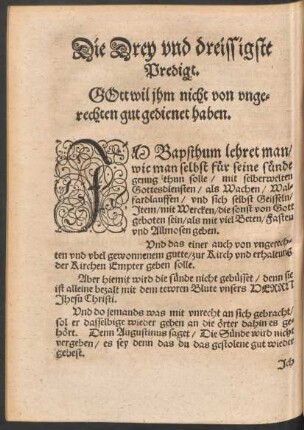 Die Drey vnd dreissigste
Predigt.
GOtt wil jhm nicht von vnge-
rechten gut gedienet haben.
IM Bapsthum lehret man/
wie man selbst für seine sünde
genug thun solle / mit selberwelten
Gottesdiensten / als Wachen / Wal-
fartlauffen / vnd sich selbst Geisseln/
Item/ mit Wercken/ die sonst von Gott
geboten sein/ als mit viel Beten/ Fasten
vnd Allmosen geben.
Vnd das einer auch von vngerech-
ten vnd vbel gewonnenem gutte/ zur Kirch vnd erhaltung
der Kirchen Empter geben solle.
Aber hiemit wird die sünde nicht gebüsset / denn sie
ist alleine bezalt mit dem tewren Blute vnsers HERRN
Jhesu Christi.
Vnd do jemands was mit vnrecht an sich gebracht/
sol er dasselbige wieder geben an die örter dahin es ge-
hört. Denn Augustinus saget/ Die Sünde wird nicht
vergeben/ es sey denn das du das gestolene gut wieder
gebest.
Ich